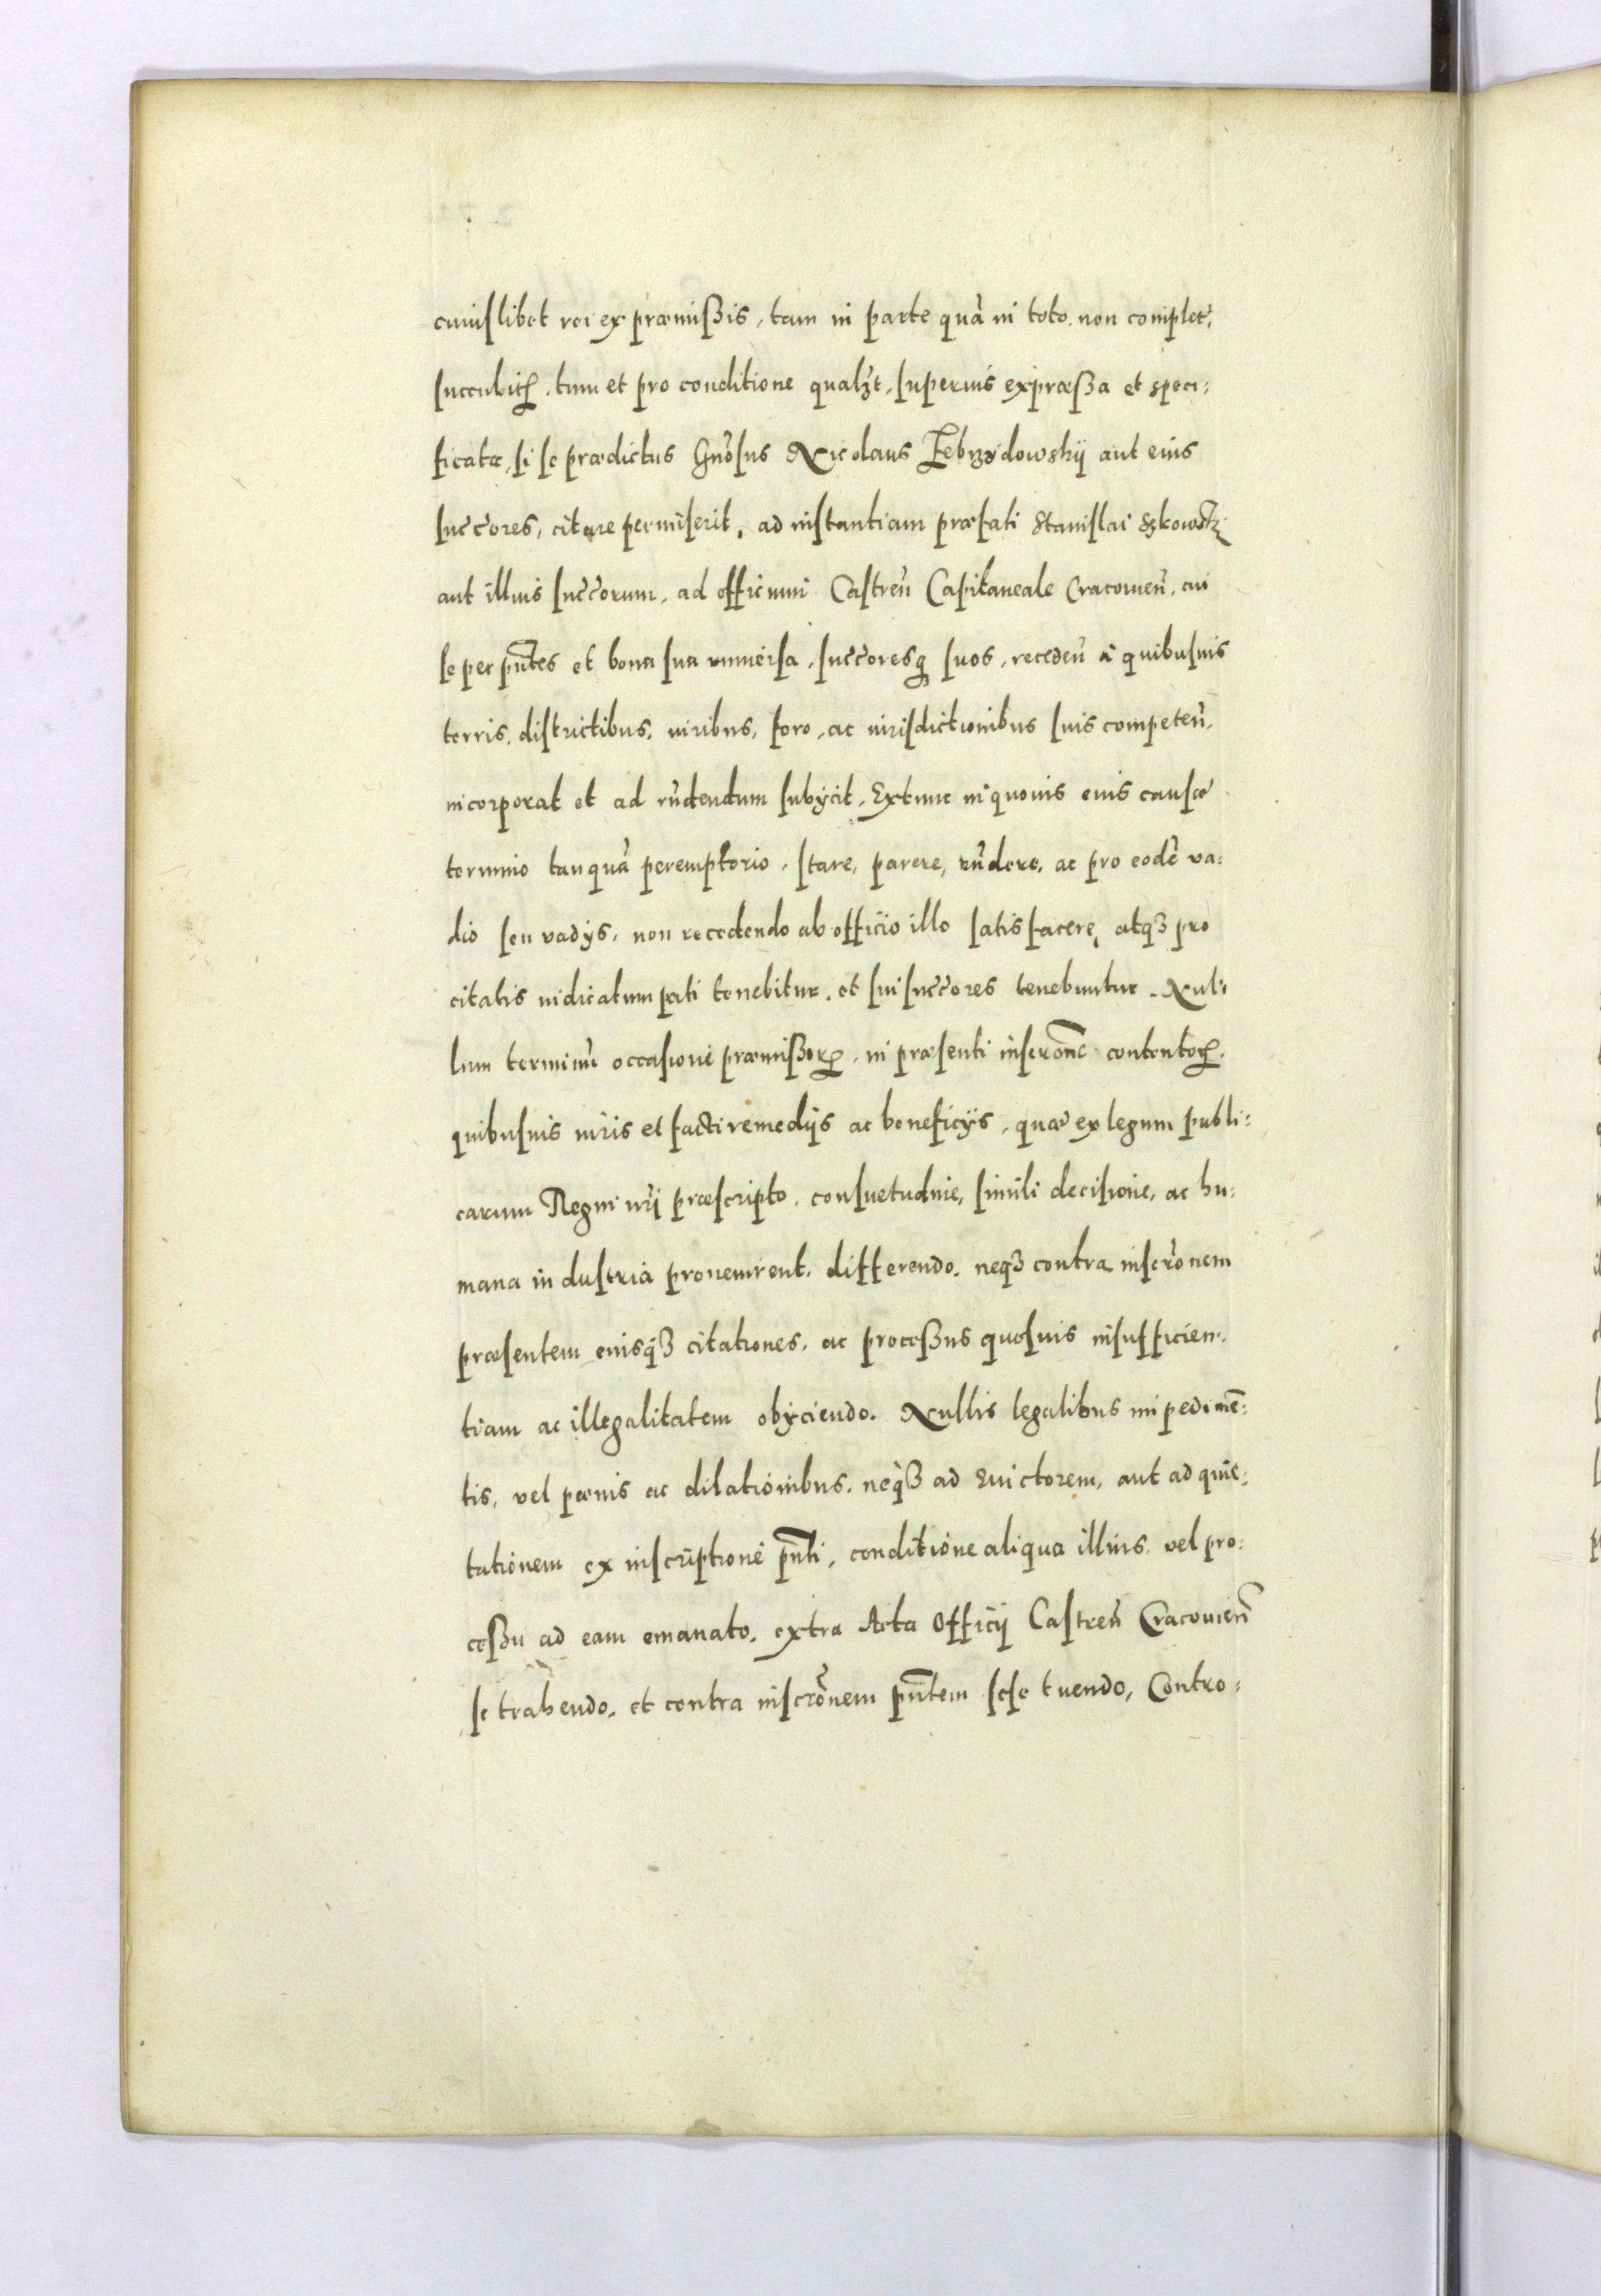 cuiuslibet rei ex præmißis, tam in parte quã in toto. non complet.
succubitꝝ. tum et pro conditione qualꝫt. superius expræßa et speci:
ficatæ, si se prædictus Gñosus Nicolaus Zebrzÿdowskÿ aut eius
succ̃ores, citare permiserit, ad instantiam præfati Stanislai
aut illius succ̃orum, ad officium Castreñ Capitaneale Cracouień, cui
se per pñtes et bona sua vniuersa, succ̃oresqꝫ suos, recedeñ à quibusuis
terris, districtibus, iuribus, foro, ac iurisdictionibus suis competeñ.
incorporat et ad rñdendum subÿcit, Extunc in quouis euis causæ
termino tanquã peremptorio, stare, parere, rñdere, ac pro eodẽ va:
dio seu vadÿs, non recedendo ab officio illo satisfacere, atqꝫ pro
citatis iudicatum pati tenebitur. et sui succ̃ores tenebuntur. Nul:
lum terminũ occasione præmißorꝝ, in præsenti inscr̃one contentorꝝ.
quibusuis iuris et facti remedÿs ac beneficÿs, quæ ex legum publi:
carum Regni nrĩ præscripto, consuetudine, simili decisione, ac hu:
mana industria prouenirent. differendo. neqꝫ contra inscr̃onem
præsentem eiusqꝫ citationes, ac proceßus quosuis insufficien:
tiam ac illegalitatem obÿciendo. Nullis legalibus impedimẽ:
tis, vel pœnis ac dilationibus, neqꝫ ad Euictorem, aut ad quie:
tationem ex inscriptione pñti, conditione aliqua illius, vel pro:
ceßu ad eam emanato, extra Acta Officÿ Castreñ Cracouień
se trahendo, et contra inscr̃onem pñtem sese tuendo, Contro: